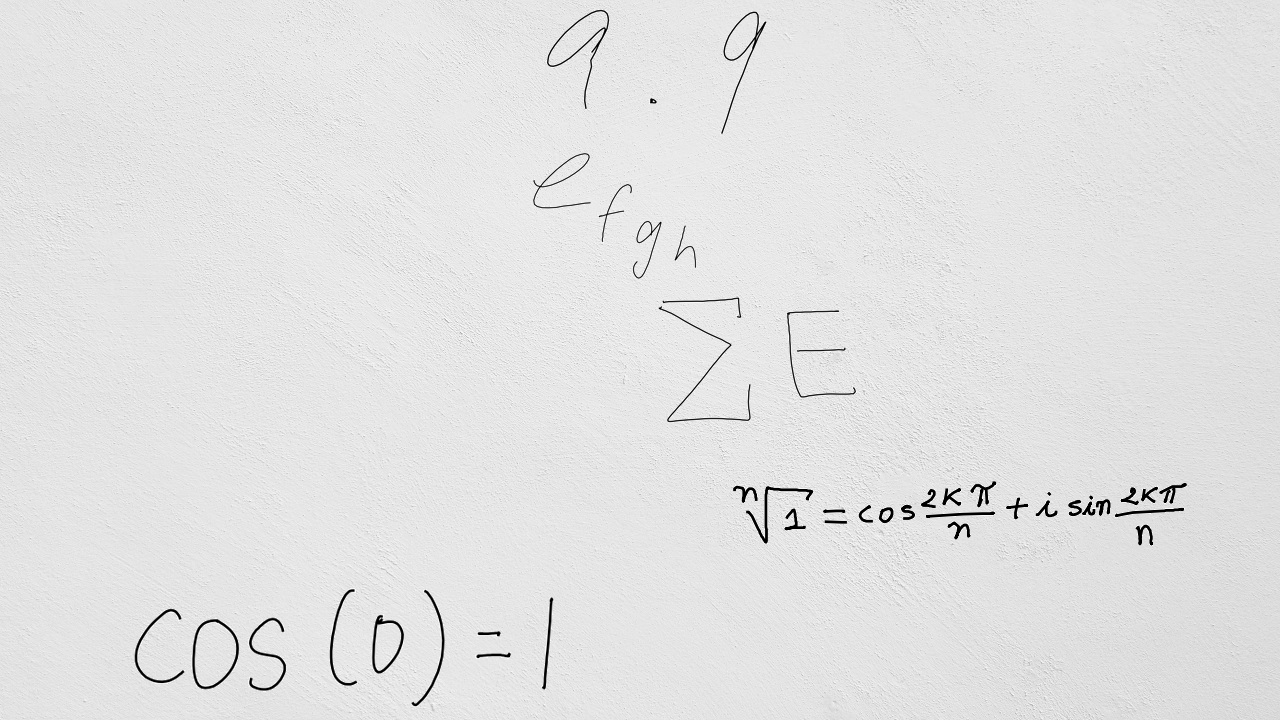 9.9
e_{f_{g_h}}
∑ E
\sqrt[n]{1} = cos \frac{2kπ}{n} + i sin \frac{2kπ}{n}
cos(0) = 1